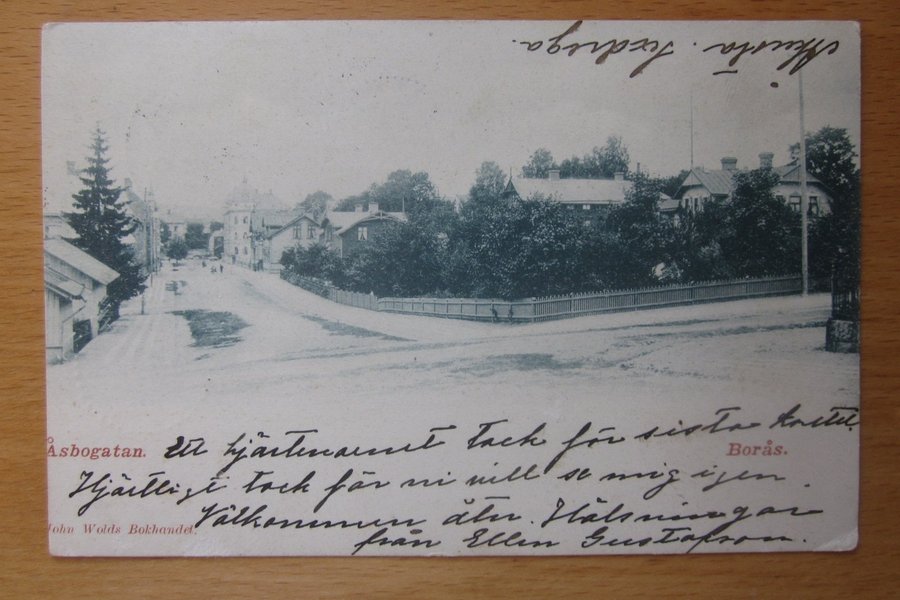 Åsbogatan.
Ett hjärtevarmt tack för sista kortet.
Borås.
Hjärtligt tack för ni vill se mig igen.
John Wolds Bokhandel.
Välkommen åter. Hälsningar
från Ellen Gustafson.